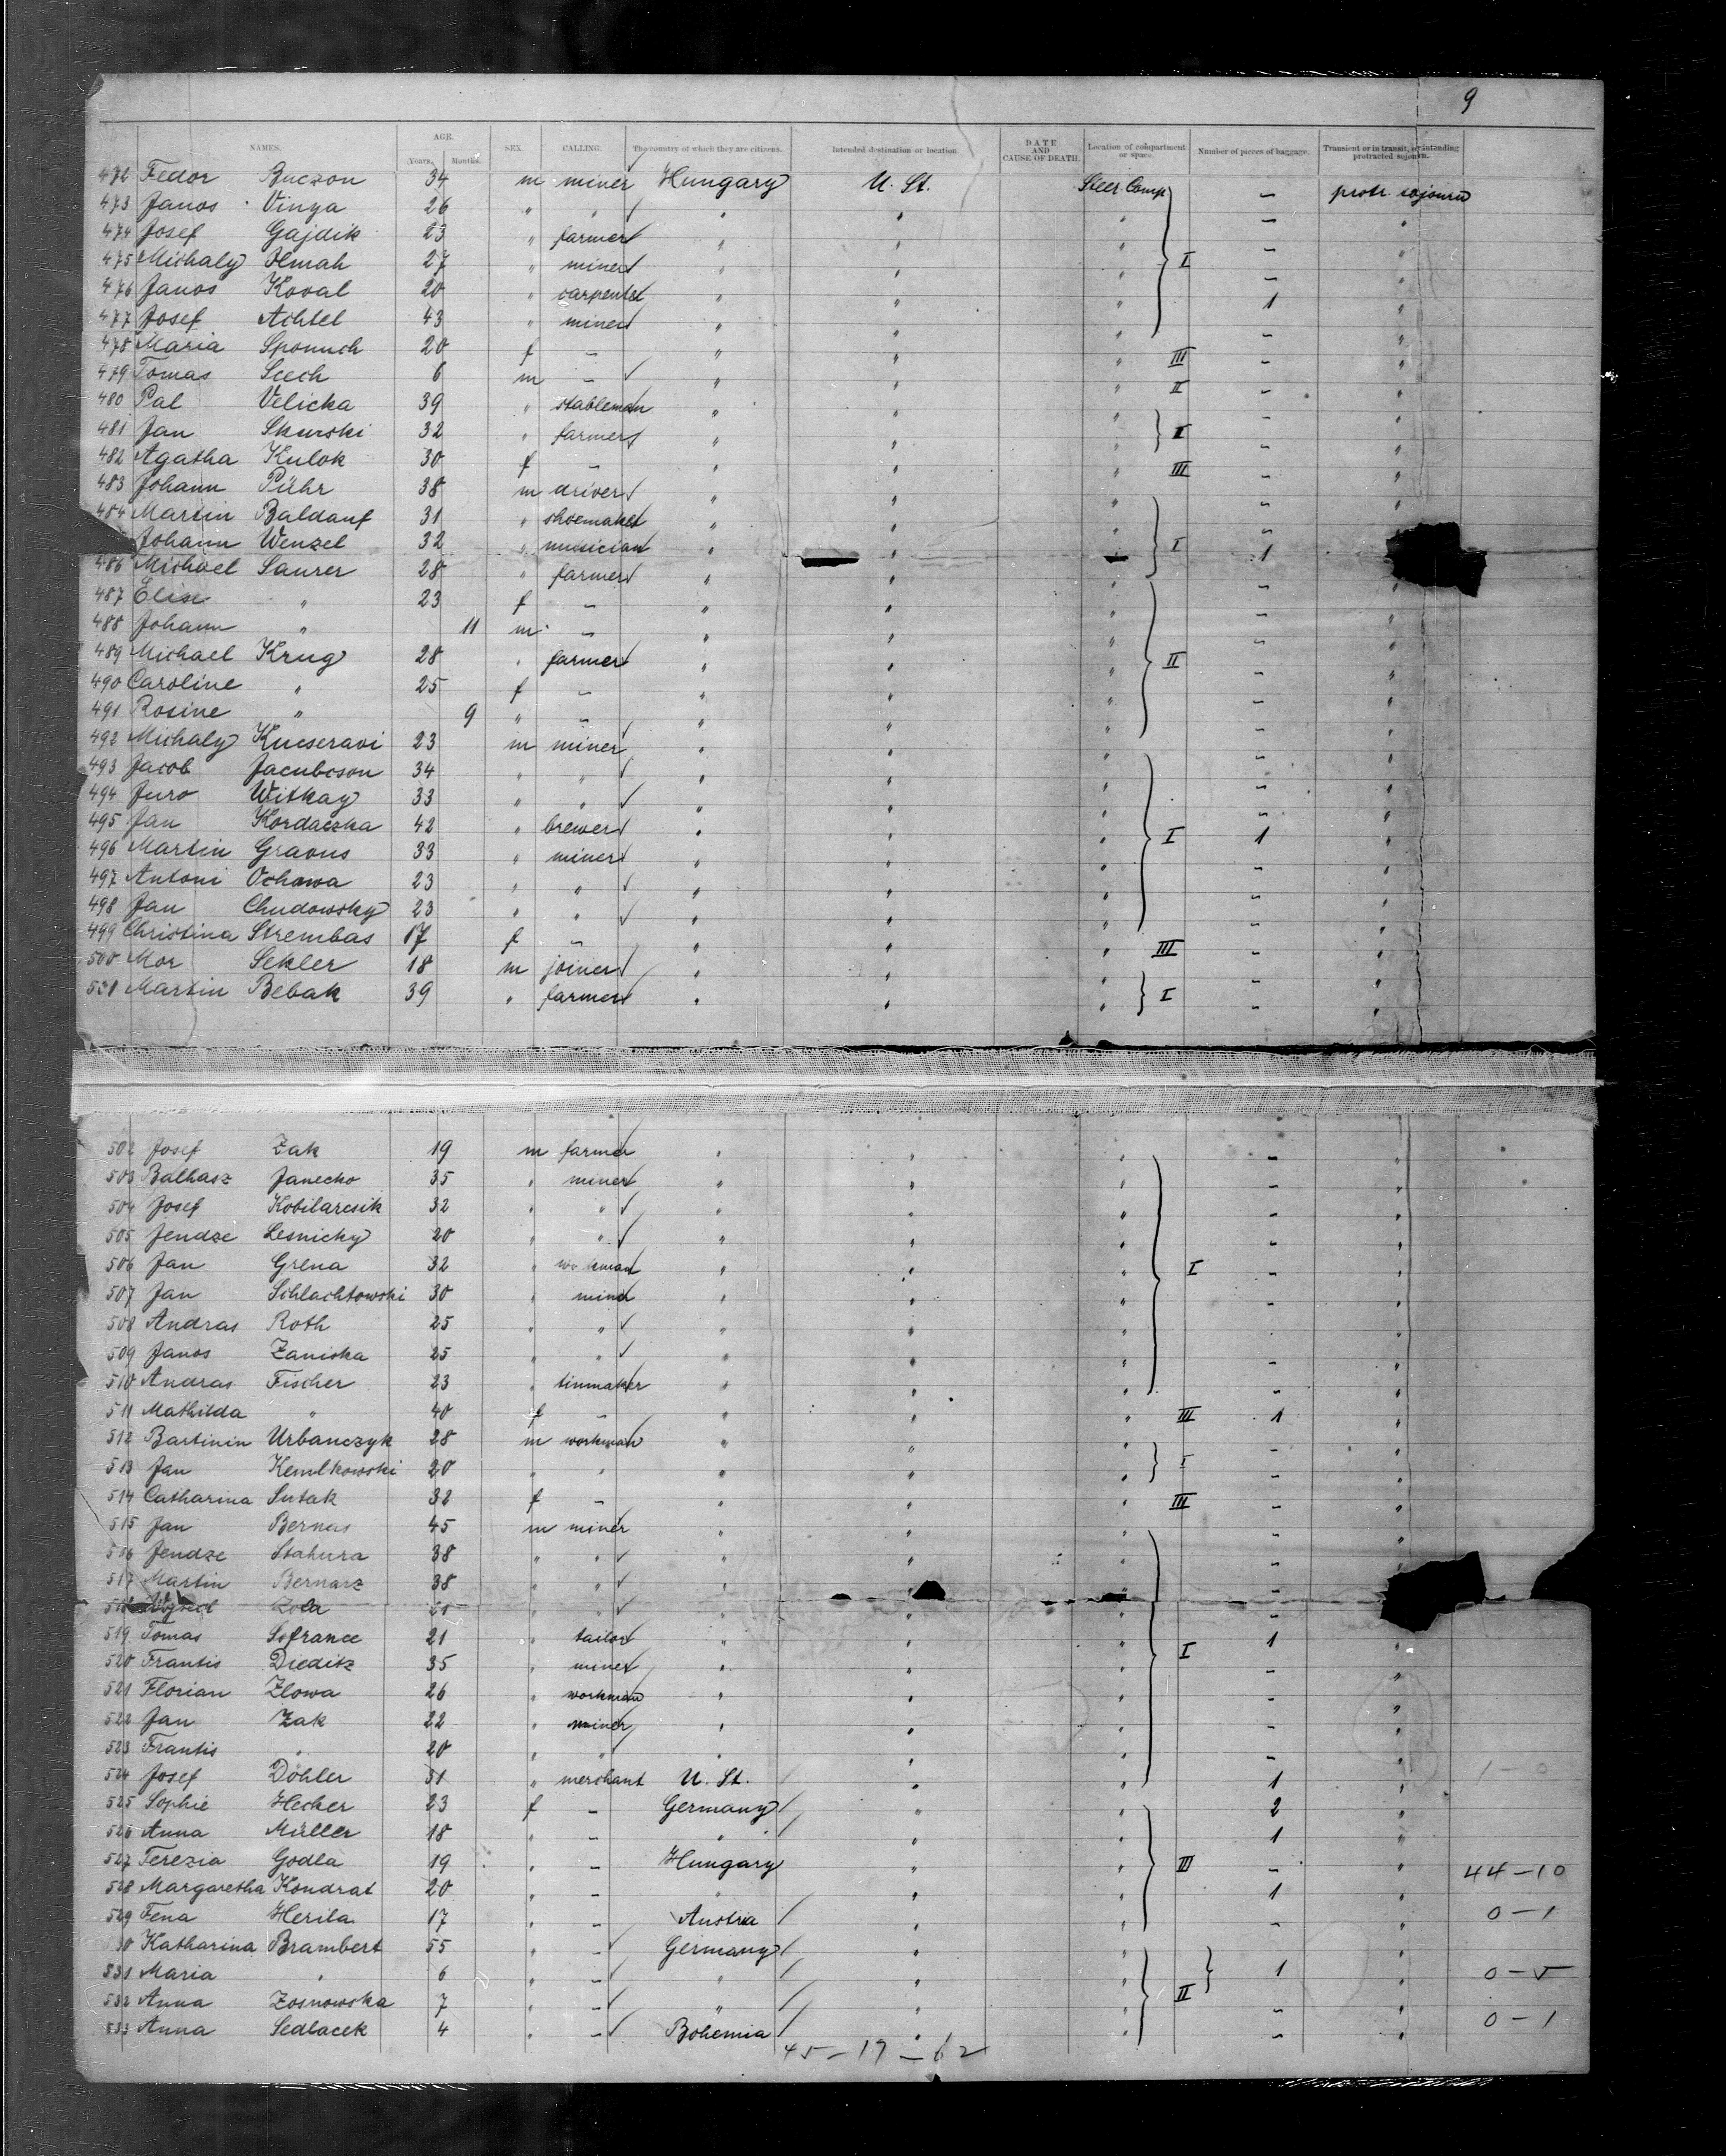 9
NAMES. AGE. Years. Months. SEX. CALLING. The country of which they are citizens. Intended destination or location. DATE AND CAUSE OF DEATH. Location of compartment or space. Number of pieces of baggage. Transient or in transit, or intending protracted sojourn.
472 Fedor Buczon 34 m miner Hungary U. St. Steer Comp - protr. sojourn
473 Janos Vinya 26 " " " " " - "
474 Josef Gajdik 23 " farmer " " " - "
475 Michaly 27 " miner " " " I - "
476 Janos Koval 20 " carpenter " " " 1 "
477 Josef Achtel 43 " miner " " " - "
478 Maria 20 f - " " " III - "
479 Tomas Scech 6 m - " " " II - "
480 Pal Velicka 39 " stableman " " " - "
481 Jan Skurski 32 " farmer " " " I - "
482 Agatha Kulok 30 f - " " " III - "
483 Johann Pühr 38 m driver " " " - "
484 Martin Baldauf 31 " shoemaker " " " - "
Johann Wenzel 32 " musician " " I 1
486 Michael Saurer 28 " farmer " " " - "
487 Elise " 23 f - " " " - "
488 Johann " 11 m - " " " - "
489 Michael Krug 28 " farmer " " " II - "
490 Caroline " 25 f - " " " - "
491 Rosine " 9 " - " " " - "
492 Michaly Kucseravi 23 m miner " " " - "
493 Jacob Jacubcson 34 " " " " " - "
494 Juro Witkay 33 " " " " " - "
495 Jan Kordaczka 42 " brewer " " " I 1 "
496 Martin Graous 33 " miner " " " - "
497 Antoni Ochawa 23 " " " " " - "
498 Jan Chudowsky 23 " " " " " - "
499 Christina Strembas 17 f - " " " III - "
500 Mor Sekler 18 m joiner " " " - "
501 Martin Bebak 39 " farmer " " " I - "
502 Josef Zak 19 m farmer " " " - "
503 Balhasz Janecho 35 " miner " " " - "
504 Josef Kobilarcsik 32 " " " " - "
505 Jendze Lesnicky 20 " " " " " - "
506 Jan Grena 32 " workman " " " I - "
507 Jan Schlachtowski 30 " miner " " " - "
508 Andras Roth 25 " " " " " "
509 Janos Zaniska 25 " " " " " - "
510 Andras Fischer 23 " tinmaker " " " - "
511 Mathilda " 40 f - " " " III 1 "
512 Urbanczyk 28 m workman " " " - "
513 Jan Kemlkowski 20 " " " " " I - "
514 Catharina Sutak 32 f - " " " III - "
515 Jan Bernas 45 m miner " " " - "
516 Jendze Stahura 38 " " " " " - "
517 Martin Bernasz 38 " " " " -
518 Zola " " " " " -
519 Tomas Sofrance 21 " tailor " " " I 1 "
520 Frantis Dieditz 35 " miner " " " - "
521 Florian Zlowa 26 " workman " " " - "
522 Jan Zak 22 " miner " " " - "
523 Frantis " 20 " " " " " - "
524 Josef Döhler 51 " merchant U. St. " " 1 " 1 - 0
525 Sophie Hecker 23 f - Germany " " 2 "
526 Anna Müller 18 " - " " " 1 "
527 Terezia Godla 19 " - Hungary " " III - " 44-10
528 Margaretha Kondrat 20 " - " " " 1 "
529 Fena Herila 17 " - Austria " " - " 0-1
530 Katharina Brambert 55 " - Germany " " "
531 Maria " 6 " - " " " 1 " 0-5
532 Anna Zosnowska 7 " - " " " II - "
533 Anna Sedlacek 4 " - Bohemia " " - " 0-1
45-17-62